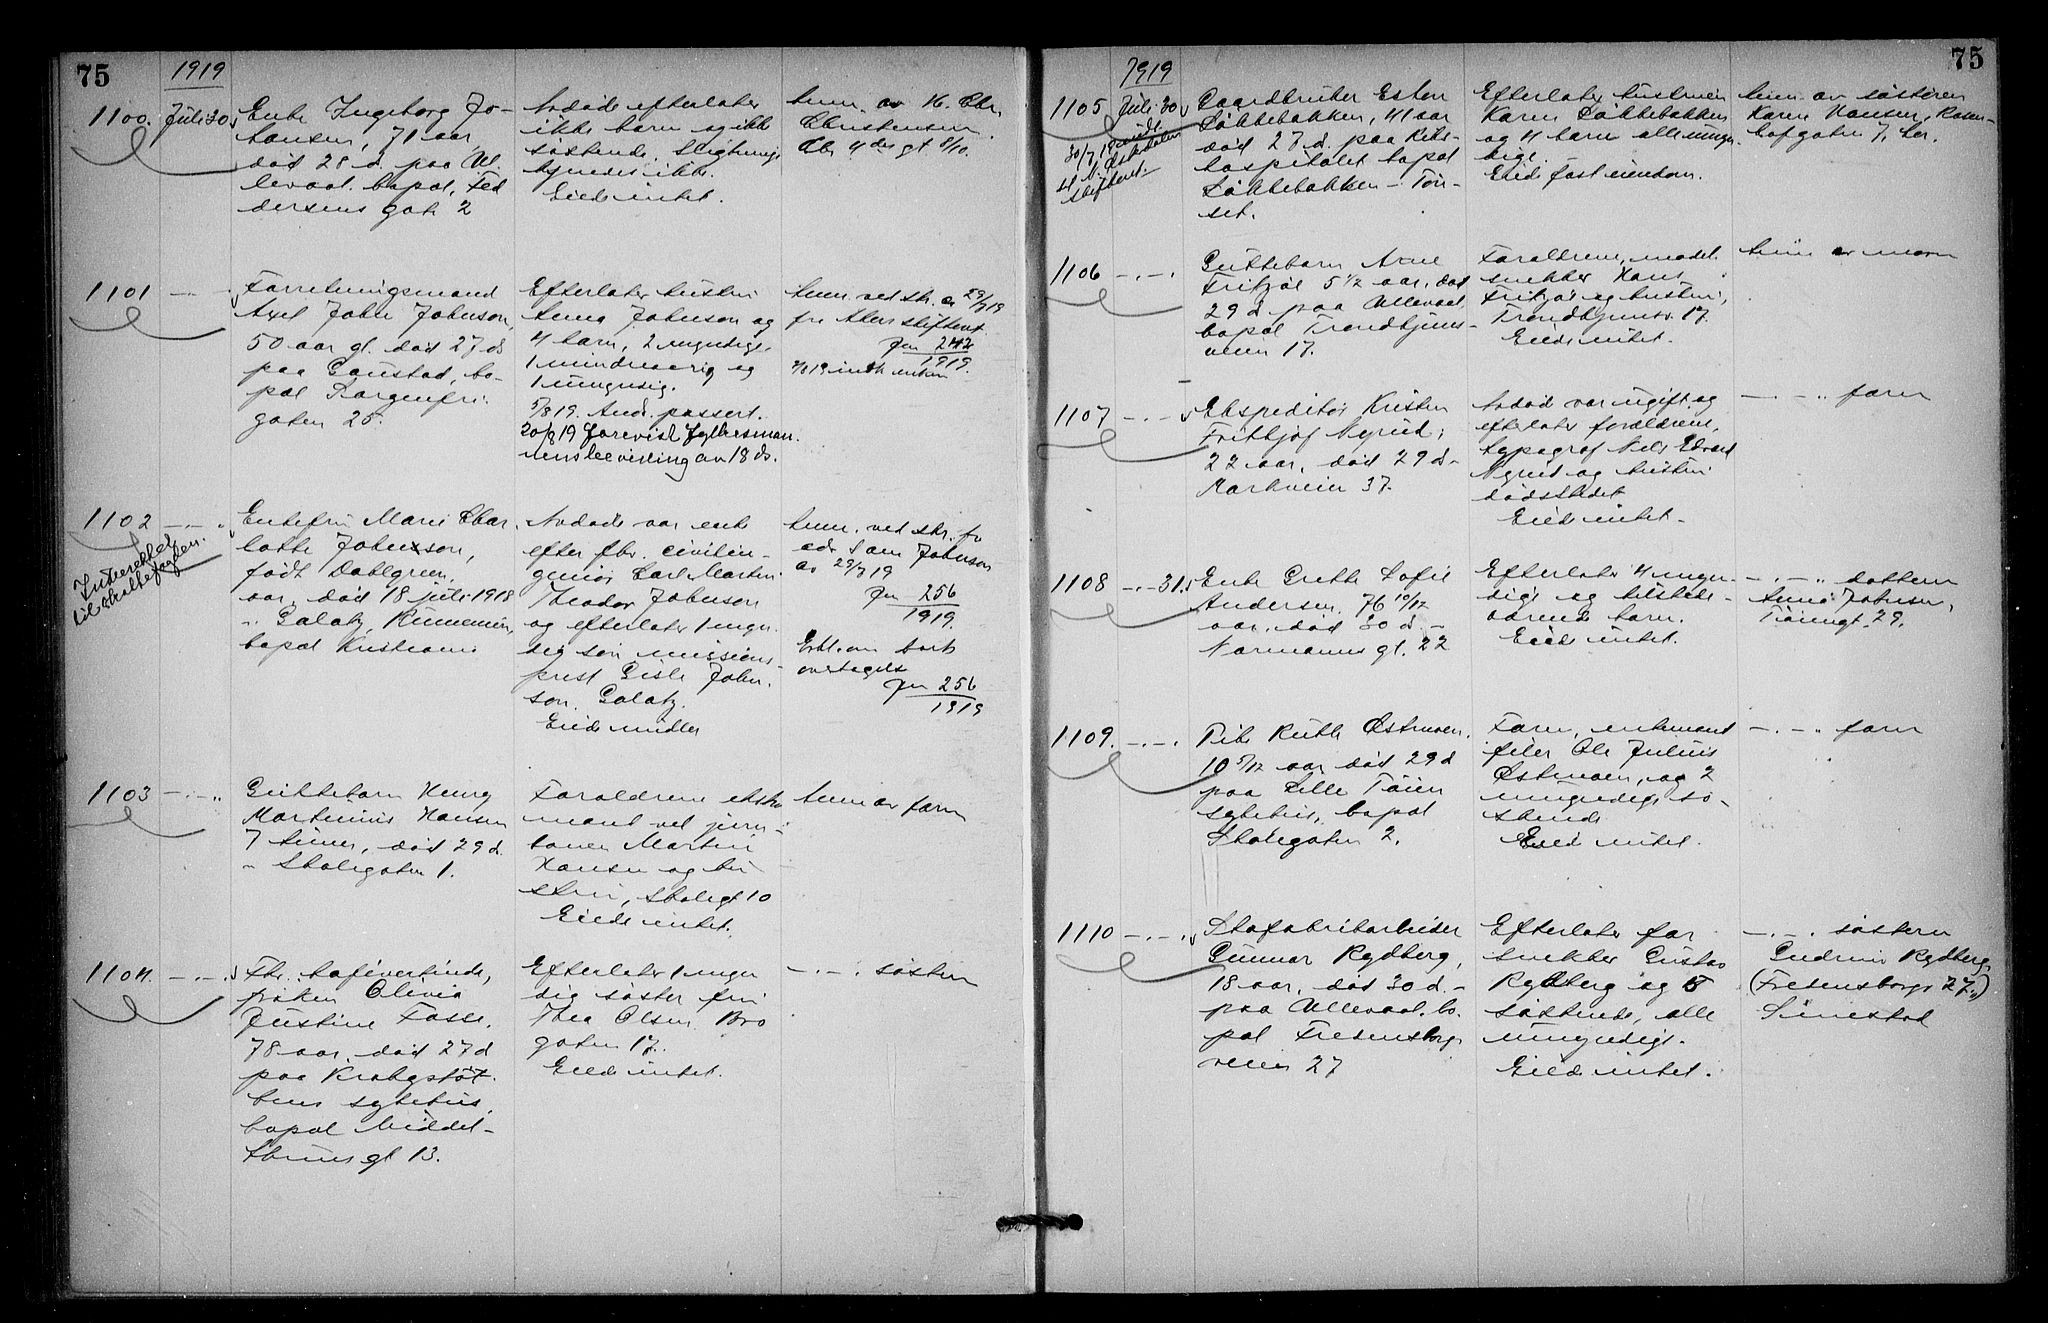 75
1919
1100. Juli 30.
Enke Ingeborg Jo-
hansen, 71 aar
död 28 d. paa Ul
levaal. bopal, Fed
dersens gate 2
Avdöde efterlater
ikke barn og ikke
söskende. Slegtninge
kjendes ikke.
Eiede intet.
Anm. av
Christensen
1101
Forretningsmand
Axel John Johnson,
50 aar gl. död 27 ds
paa Gaustad, bo-
pal Borgenfri
gaten 25.
Efterlater hustru
Anna Johnson og
4 barn, 2 myndige,
1 mindreaarig og
1 umyndig.
5/8 19. Aud. passert.
20/8 19 Forevist fylkesman-
nens bevilling av 18 ds.
Anm. ved skr. av 29/7 19
fra Akers skifteret
Jnr 242
1919.
1102
Enkefru Marie Char
lotte Johnson,
födt Dahlgreen,
aar, död 18 juli 1918
" Galatz, Rumenien,
bopal Kristiania
Avdöde var enke
efter fhv. civilin-
geniör Carl Martin
Theodor Johnson
og efterlater 1 myn
dig sön missions-
prest Gisle John-
son, Galatz.
Eiede midler
Anm. ved skr. fra
adv. Johnson
av 29/7 19
Jnr 256
1919.
Erkl. om boets
overtagelse
Jnr 256
1919
1103
Guttebarn Henry
Martinius Hansen
7 timer, död 29 d.
" Skolegaten 1.
Foraldrene ekstra
mand ved jern-
banen Martin
Hansen og hu
stru, Skolegt 10
Eiede intet.
Anm av faren
1104.
Fhv. kaféverтinde,
fröken Olivia
Justine Fosse,
78 aar, död 27 d
paa Krohgstöt-
tens sykehus,
bopal Middel-
thuns gt 13.
Efterlater 1 myn
dig söster fru
Thea Olsen Bro
gaten 17.
Eiede intet.
söstren
75
1919
1105 Juli 30
Gaardbruker Esten
Lökkebakken, 41 aar
död 27 d. paa Riks-
hospitalet bopal
Lökkebakken - Tön-
set.
Efterlater hustruen
Karen Lökkebakken
og 4 barn alle umyn-
dige.
Eied fast eiendom.
Anm. av söstren
Karen Hansen, Rosen-
hofgaten 7, her.
1106
Guttebarn Arne
Fritzöe 5 1/2 aar, död
29 d paa Ullevaal,
bopal Trondhjems-
veien 17.
Foraldrene, model
snekker Hans
Fritzöe og hustru,
Trondhjemsv. 17.
Eiede intet.
Anm av moren
1107
Ekspeditör Kristen
Frithjof Nyrud,
22 aar, död 29 d-
Markveien 37.
Avdöd var ugift og
efterlater foraldrene,
typograf Nils Edvard
Nyrud og hustru
dödsstedet
Eied intet.
faren
1108 31.
Enke Grethe Sofie
Andersen, 76 10/12
aar, död 30 d.-
Normanns gt. 22
Efterlater 4 myn-
dige og tilstede-
varende barn.
Eiede intet.
datteren
Anna Johnsen,
Töiengt. 29.
1109.
Pike Ruth Östmoen,
10 5/12 aar död 29 d
paa Lille Töien
sykehus, bopal
Skolegaten 2.
Faren, enkemand
filer Ole Julius
Östmoen, og 2
umyndige sö-
skende
Eied intet.
faren
1110
Skofabrikarbeider
Gunnar Rydberg,
18 aar, död 30 d.-
paa Ullevaal. bo.
pal Fredensborg-
veien 27
Efterlater far
snekker Gustav
Rydberg og 5
söskende, alle
umyndige.
Eiede intet.
söstren
Gudrun Rydberg,
(Fredensborgv 27.)